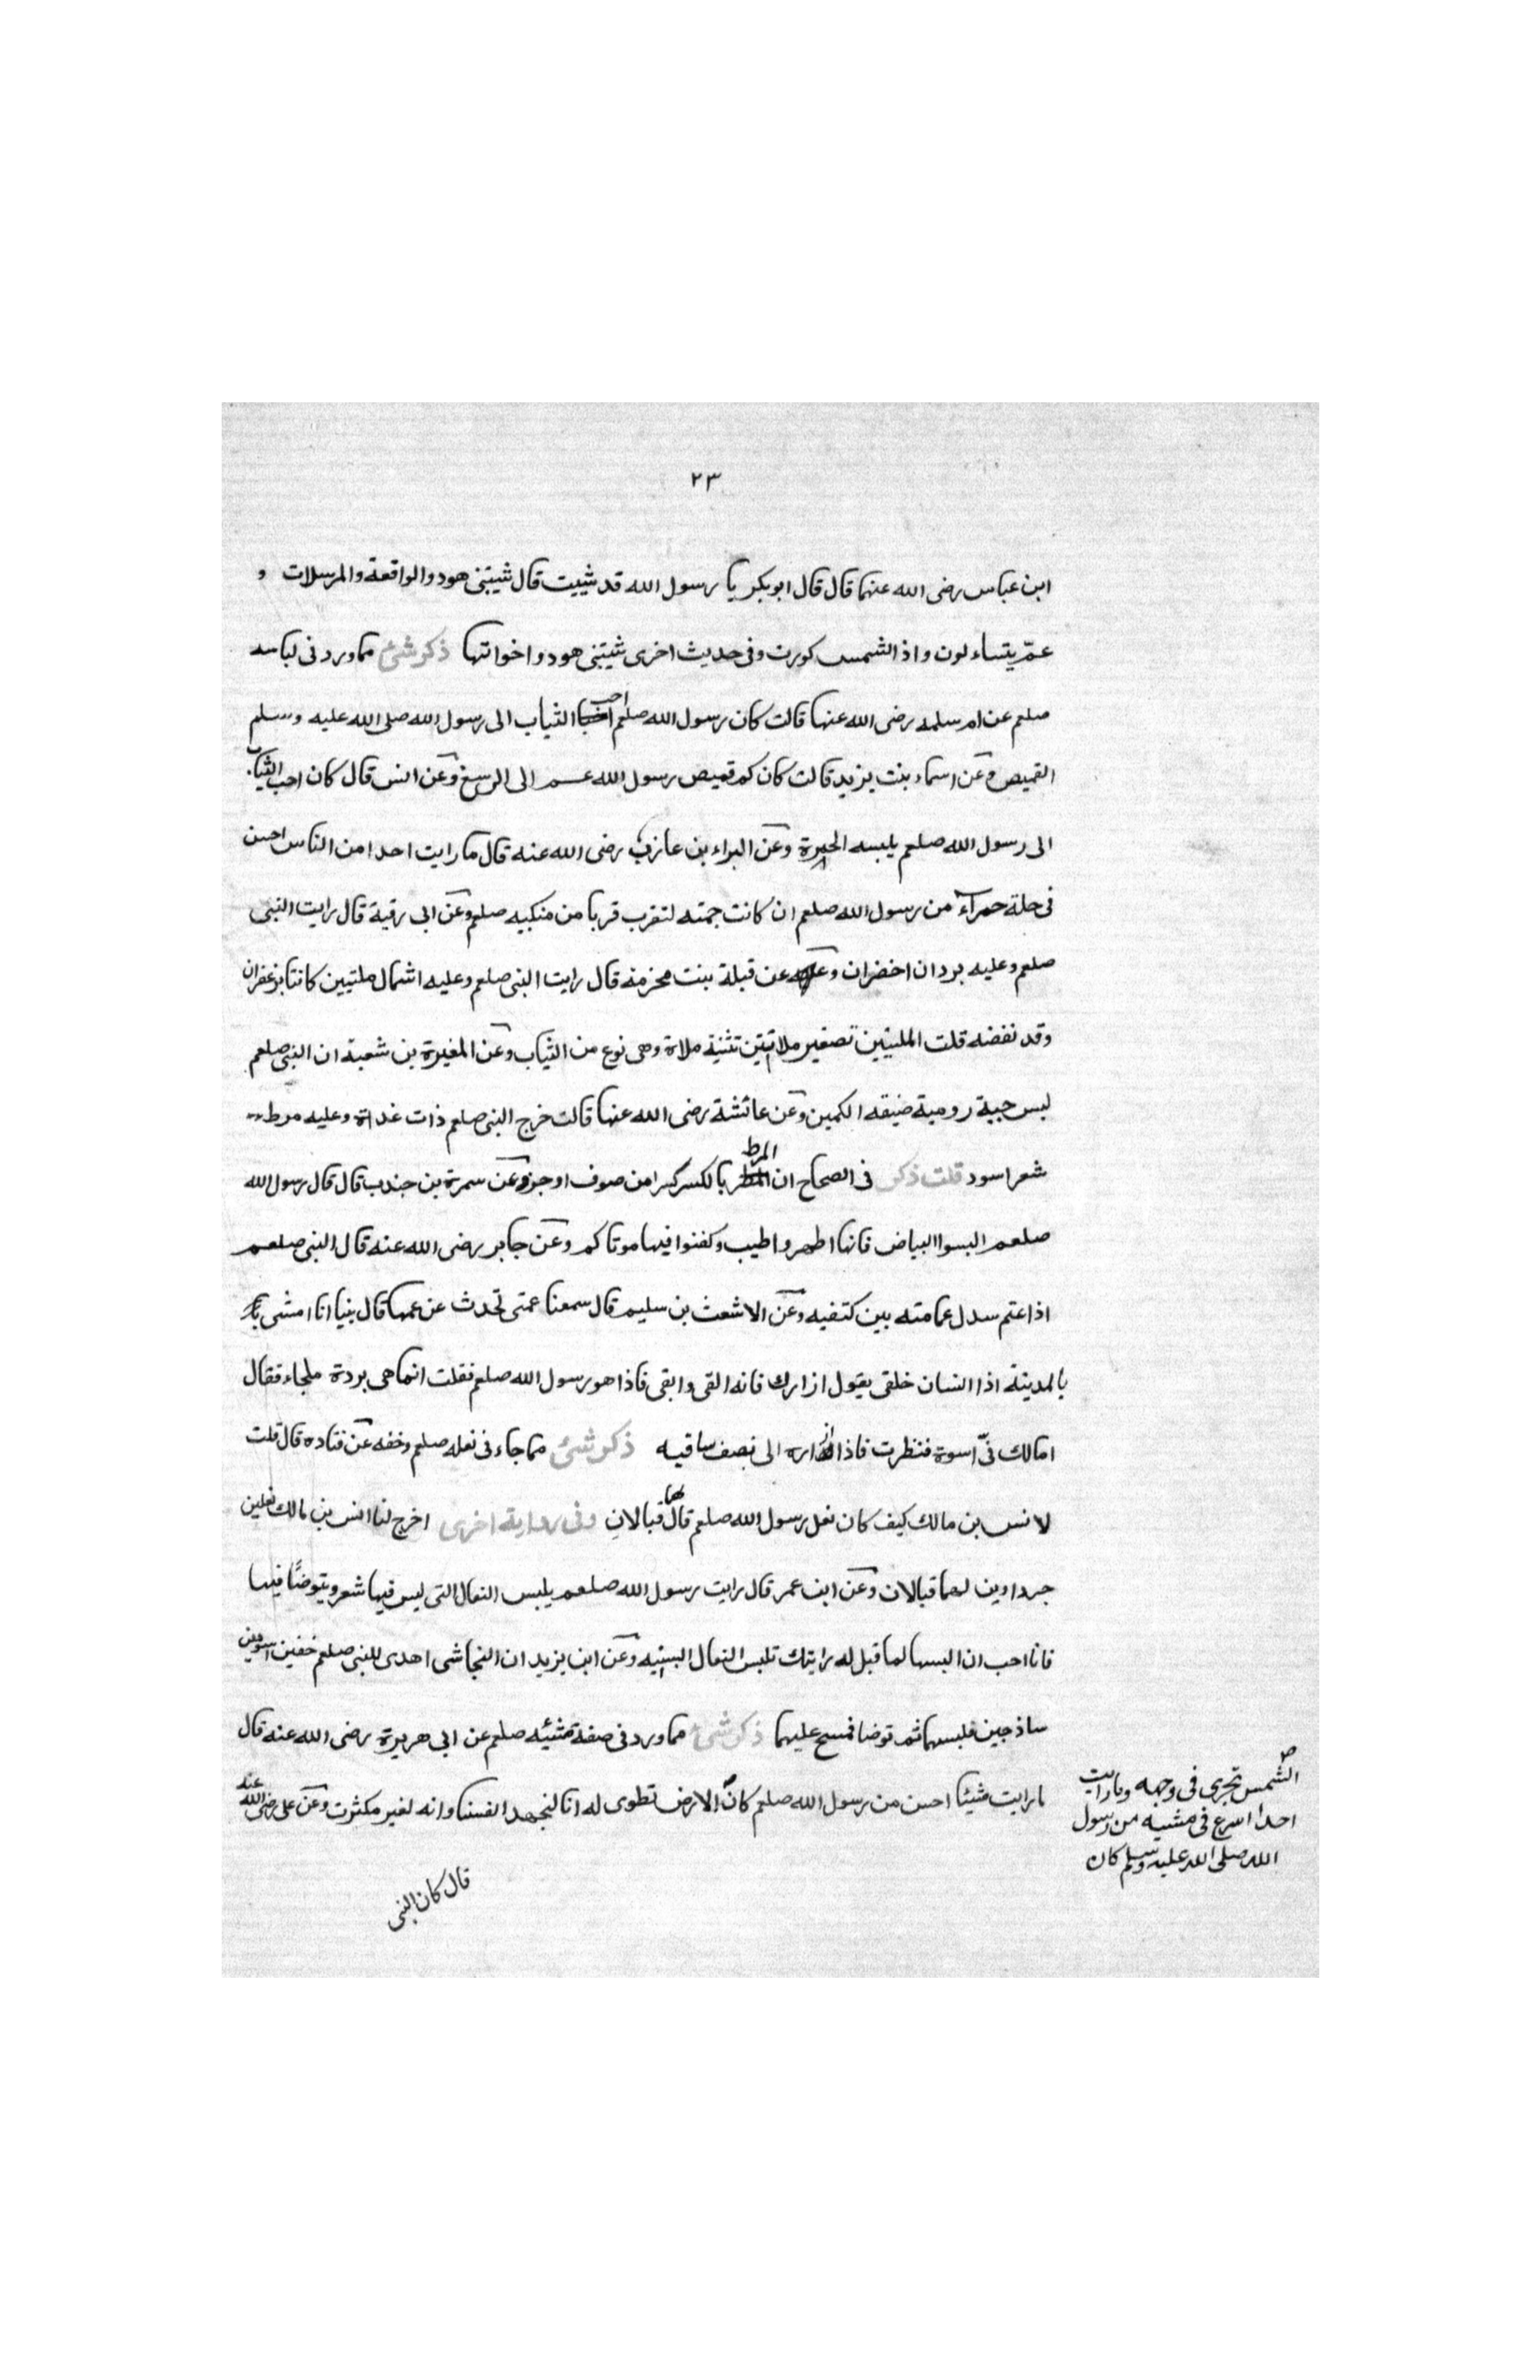 ٢٣
ابن عباس رضى الله عنهما قال قال ابوبكر يا رسول الله قد شيبت قال شيبتنى هود والواقعة والمرسلات و
عمّ يتساءلون واذ الشمس كورت وفى حديث اخرى شيبتنى هود واخواتها ذكر شئ مما ورد فى لباسه
صلعم عن ام سلمه رضى الله عنها قالت كان رسول الله صلعم احب الثياب الى رسول الله صلى الله عليه وسلم
القميص وعن اسماء بنت يزيد قالت كان كم قميص رسول الله عم الى الرسغ وعن انس قال كان احب الثياب
الى رسول الله صلعم يلبسه الحبرة وعن البراء بن عازب رضى الله عنه قال ما رايت احدا من الناس احسن
فى حلة حمرآء من رسول الله صلعم ان كانت جمته لتقرب قربا من منكبيه صلعم وعن ابى رقية قال رايت النبى
صلعم وعليه بردان اخضران وعن قبلة بنت مخرمة قال رايت النبى صلعم وعليه اشمال ملتيين كانتا بزعفران
وقد نفضه قلت الملتيين تصغير ملاتين تثنية ملاة وهى نوع من الثياب وعن المغيرة بن شعبة ان النبى صلعم
لبس جبة رومية ضيقه الكمين وعن عائشة رضى الله عنها قالت خرج النبى صلعم ذات غداة وعليه مرط
شعر اسود قلت ذكر فى الصحاح ان المرط بالكسر كسرا من صوف او جز وعن سمرة بن جندب قال قال رسول الله
صلعم البسوا البياض فانها اطهر واطيب وكفنوا فيها موتاكم وعن جابر رضى الله عنه قال النبى صلعم
اذا عتم سدل عمامته بين كتفيه وعن الاشعث بن سليم قال سمعنا عمتى تحدث عن عمها قال بنيا انا امشى
بالمدينة اذا انسان خلفى يقول ازارك فانه القى وابقى فاذا هو رسول الله صلعم فقلت انما هى بردة ملجاء فقال
امالك فىّ اسوة فنظرت فاذا ازاره الى نصف ساقيه ذكر شئ مما جاء فى نعله صلعم وخفه عن قتاده قال قلت
لانس بن مالك كيف كان نعل رسول الله صلعم قال لها قبالان وفى رواية اخرى اخرج لنا انس بن مالك نعلين
جرداوين لهما قبالان وعن ابن عمر قال رايت رسول الله صلعم يلبس النعال التى ليس فيها شعر ويتوضأ فيها
فانا احب ان البسها لما قبل له رايتك تلبس النعال السبتيه وعن ابن يزيد ان النجاشى اهدى للنبى صلعم خفين اسودين
ساذجين فلبسهما ثم توضا فمسح عليهما ذكر شئ مما ورد فى صفة مشيئه صلعم عن ابى هريرة رضى الله عنه قال
ما رايت شيئا احسن من رسول الله صلعم كانّ الارض تطوى له انا لنجهد انفسنا وانه لغير مكترث وعن على رضى الله عنه
الشمس تجرى فى وجهه وما رايت
احدا اسرع فى مشيه من رسول
الله صلى الله عليه وسلم كان
قال كان النبى